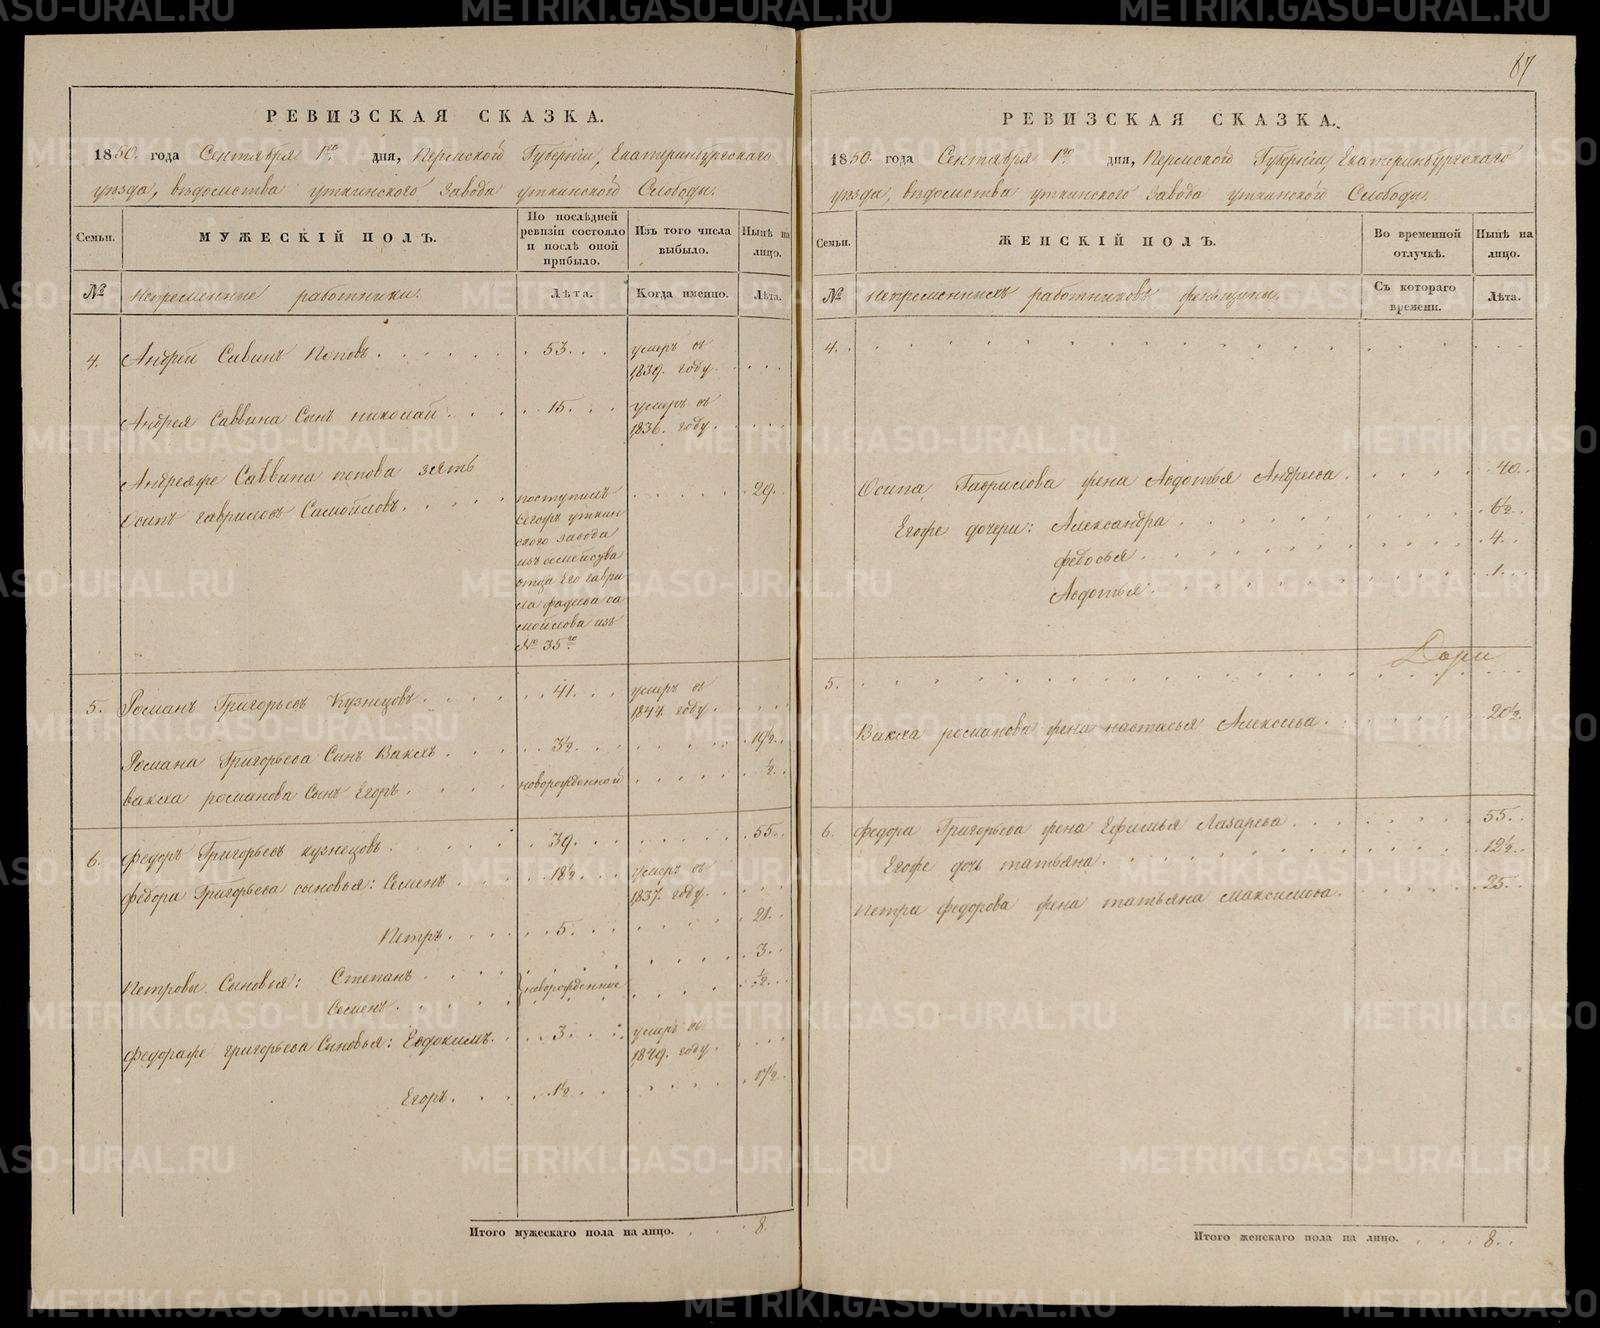 87
РЕВИЗСКАЯ СКАЗКА.
1850. года Сентября 1го дня, Пермской Губерніи, Екатеринбургскаго
уѣзда, вѣдомства уткинскаго Завода уткинской Слободы.
Семьи.
МУЖЕСКІЙ ПОЛЪ.
По послѣдней ревизіи состояло и послѣ оной прибыло.
Изъ того числа выбыло.
Нынѣ на лицо.
№ Непременные работники.
Лѣта.
Когда именно.
Лѣта.
4. Андрей Савинъ Поповъ . . . . . . 53. . . умеръ въ
1839. году. . . .
Андрея Саввина Сынъ николай . . . . 15. . . умеръ въ
1836. году. . . .
Андреяже Саввина попова зять
Осипъ гавриловъ Самойловъ. . . . поступилъ . . . . . 29.
Сегожъ уткин
скаго завода
изъ семейсува
отца Его гаври
ла фадеева са
мойлова изъ
№ 35го
5. Романъ Григорьевъ Кузнецовъ . . . . 41. . . умеръ въ
1847. году. . . .
Романа Григорьева Сынъ Вакхъ . . . . 3½. . . . . . . 19½.
вакха романова Сынъ Егоръ . . . . новорожденной . . . . . ½.
6. федоръ Григорьевъ кузнецовъ . . . . 39. . . . . . . 55.
федора Григорьева сыновья: Семенъ . . . 18½. . . умеръ въ
1837. году. . . .
Петръ. . . . 5. . . . . . . 21.
Петровы Сыновья: Степанъ . . . . . . . . 3.
новорожденные
Семенъ . . . . . . . ½.
федораже григорьева Сыновья: Евдокимъ. . . 3. . . умеръ въ
1849. году. . . .
Егоръ. . . . 1½. . . . . . 17½.
Итого мужескаго пола на лицо. . . . 8.
РЕВИЗСКАЯ СКАЗКА.
1850. года Сентября 1го дня, Пермской Губерніи, Екатеринбургскаго
уѣзда, вѣдомства уткинскаго Завода уткинской Слободы.
Семьи.
ЖЕНСКІЙ ПОЛЪ.
Во временной отлучкѣ.
Нынѣ на лицо.
№ непременныхъ работниковъ женьщины.
Съ котораго времени.
Лѣта.
4. . . . . . . . . . .
Осипа Гаврилова жена Авдотья Андреева . . . . 40.
Егоже дочери: Александра . . . . . . 6½.
федосья . . . . . . 4.
Авдотья . . . . . . 1.
5. . . . . . . . . . .
Вакха романова жена настасья Алексеева. . . . . 20½.
6. федора Григорьева жена Ефимья Лазарева . . . . . 55.
Егоже дочь татьяна. . . . . . . 12½.
Петра федорова жена татьяна максимова. . . . . 25.
Итого женскаго пола на лицо. . . . 8.
METRIKI.GASO-URAL.RU